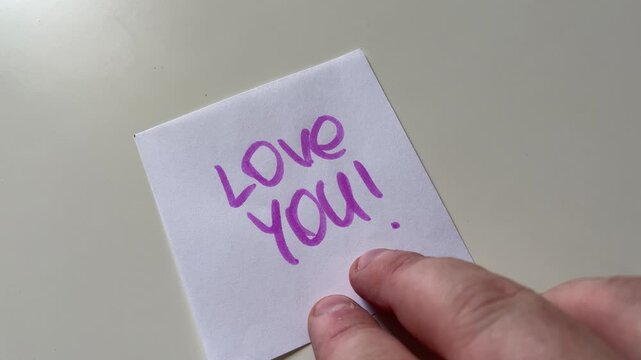 LOVe
YOU!